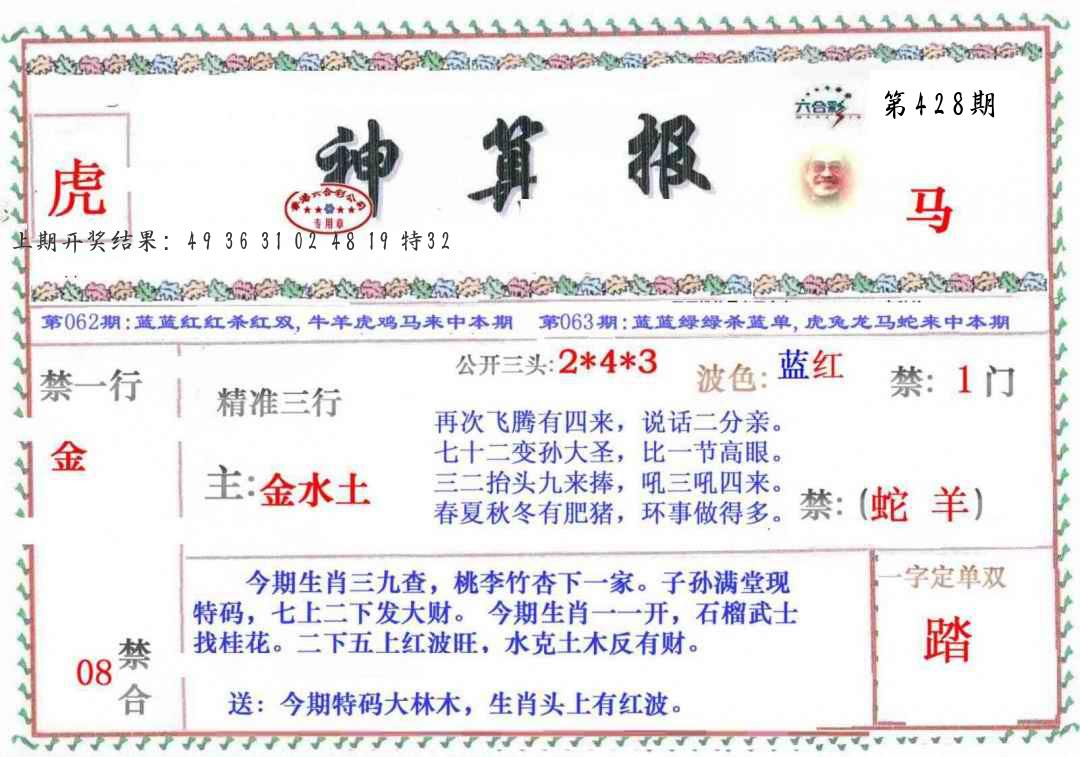 第428期
六合彩
神算报
虎
马
香港六合彩公司
专用章
上期开奖结果：49 36 31 02 48 19 特32
第062期:蓝蓝红红杀红双,牛羊虎鸡马来中本期 第063期:蓝蓝绿绿杀蓝单,虎兔龙马蛇来中本期
禁一行
金
精准三行
主:金水土
公开三头:2*4*3
波色:蓝红
禁: 1门
再次飞腾有四来，说话二分亲。
七十二变孙大圣，比一节高眼。
三二抬头九来捧，吼三吼四来。
春夏秋冬有肥猪，环事做得多。
禁:(蛇 羊)
08禁合
今期生肖三九查，桃李竹杏下一家。子孙满堂现
特码，七上二下发大财。 今期生肖一一开，石榴武士
找桂花。二下五上红波旺，水克土木反有财。
送：今期特码大林木，生肖头上有红波。
一字定单双
踏